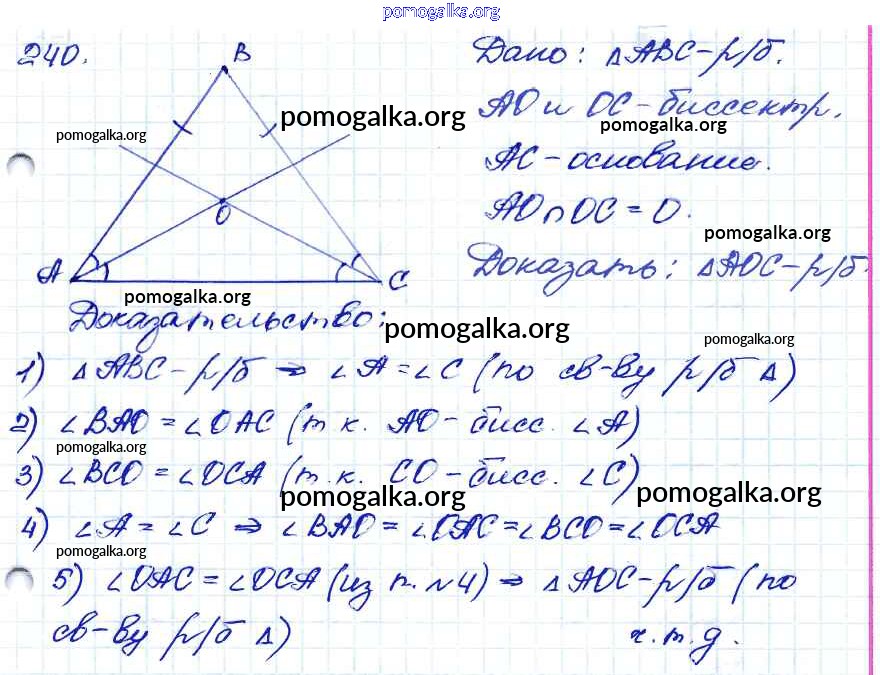 pomogalka.org
240.
B
Дано: △ABC-р/б.
pomogalka.org
AO и OC-биссектр.
pomogalka.org
pomogalka.org
AC-основание.
O
AO∩OC=O.
pomogalka.org
A
C
Доказать: △AOC-р/б
pomogalka.org
Доказательство:
pomogalka.org
pomogalka.org
1) △ABC-р/б ⇒ ∠A=∠C (по св-ву р/б △)
2) ∠BAO=∠OAC (т к. AO-бисс. ∠A)
pomogalka.org
3) ∠BCO=∠OCA (т.к. CO-бисс. ∠C)
pomogalka.org
pomogalka.org
4) ∠A=∠C ⇒ ∠BAO=∠OAC=∠BCO=∠OCA
pomogalka.org
5) ∠OAC=∠OCA (из п.№4) ⇒ △AOC-р/б (по
св-ву р/б △)
ч.т.д.